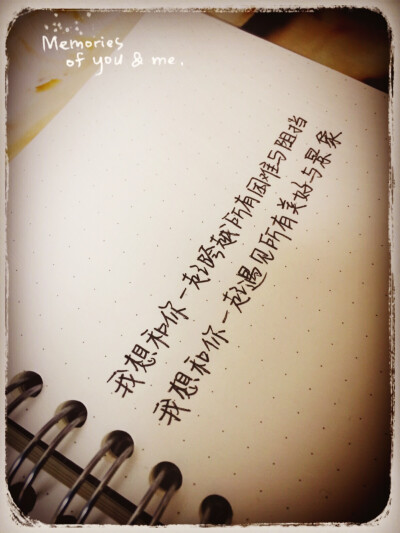 Memories
of you & me.
我想和你一起跨越所有困难与阻挡
我想和你一起遇见所有美好与景象